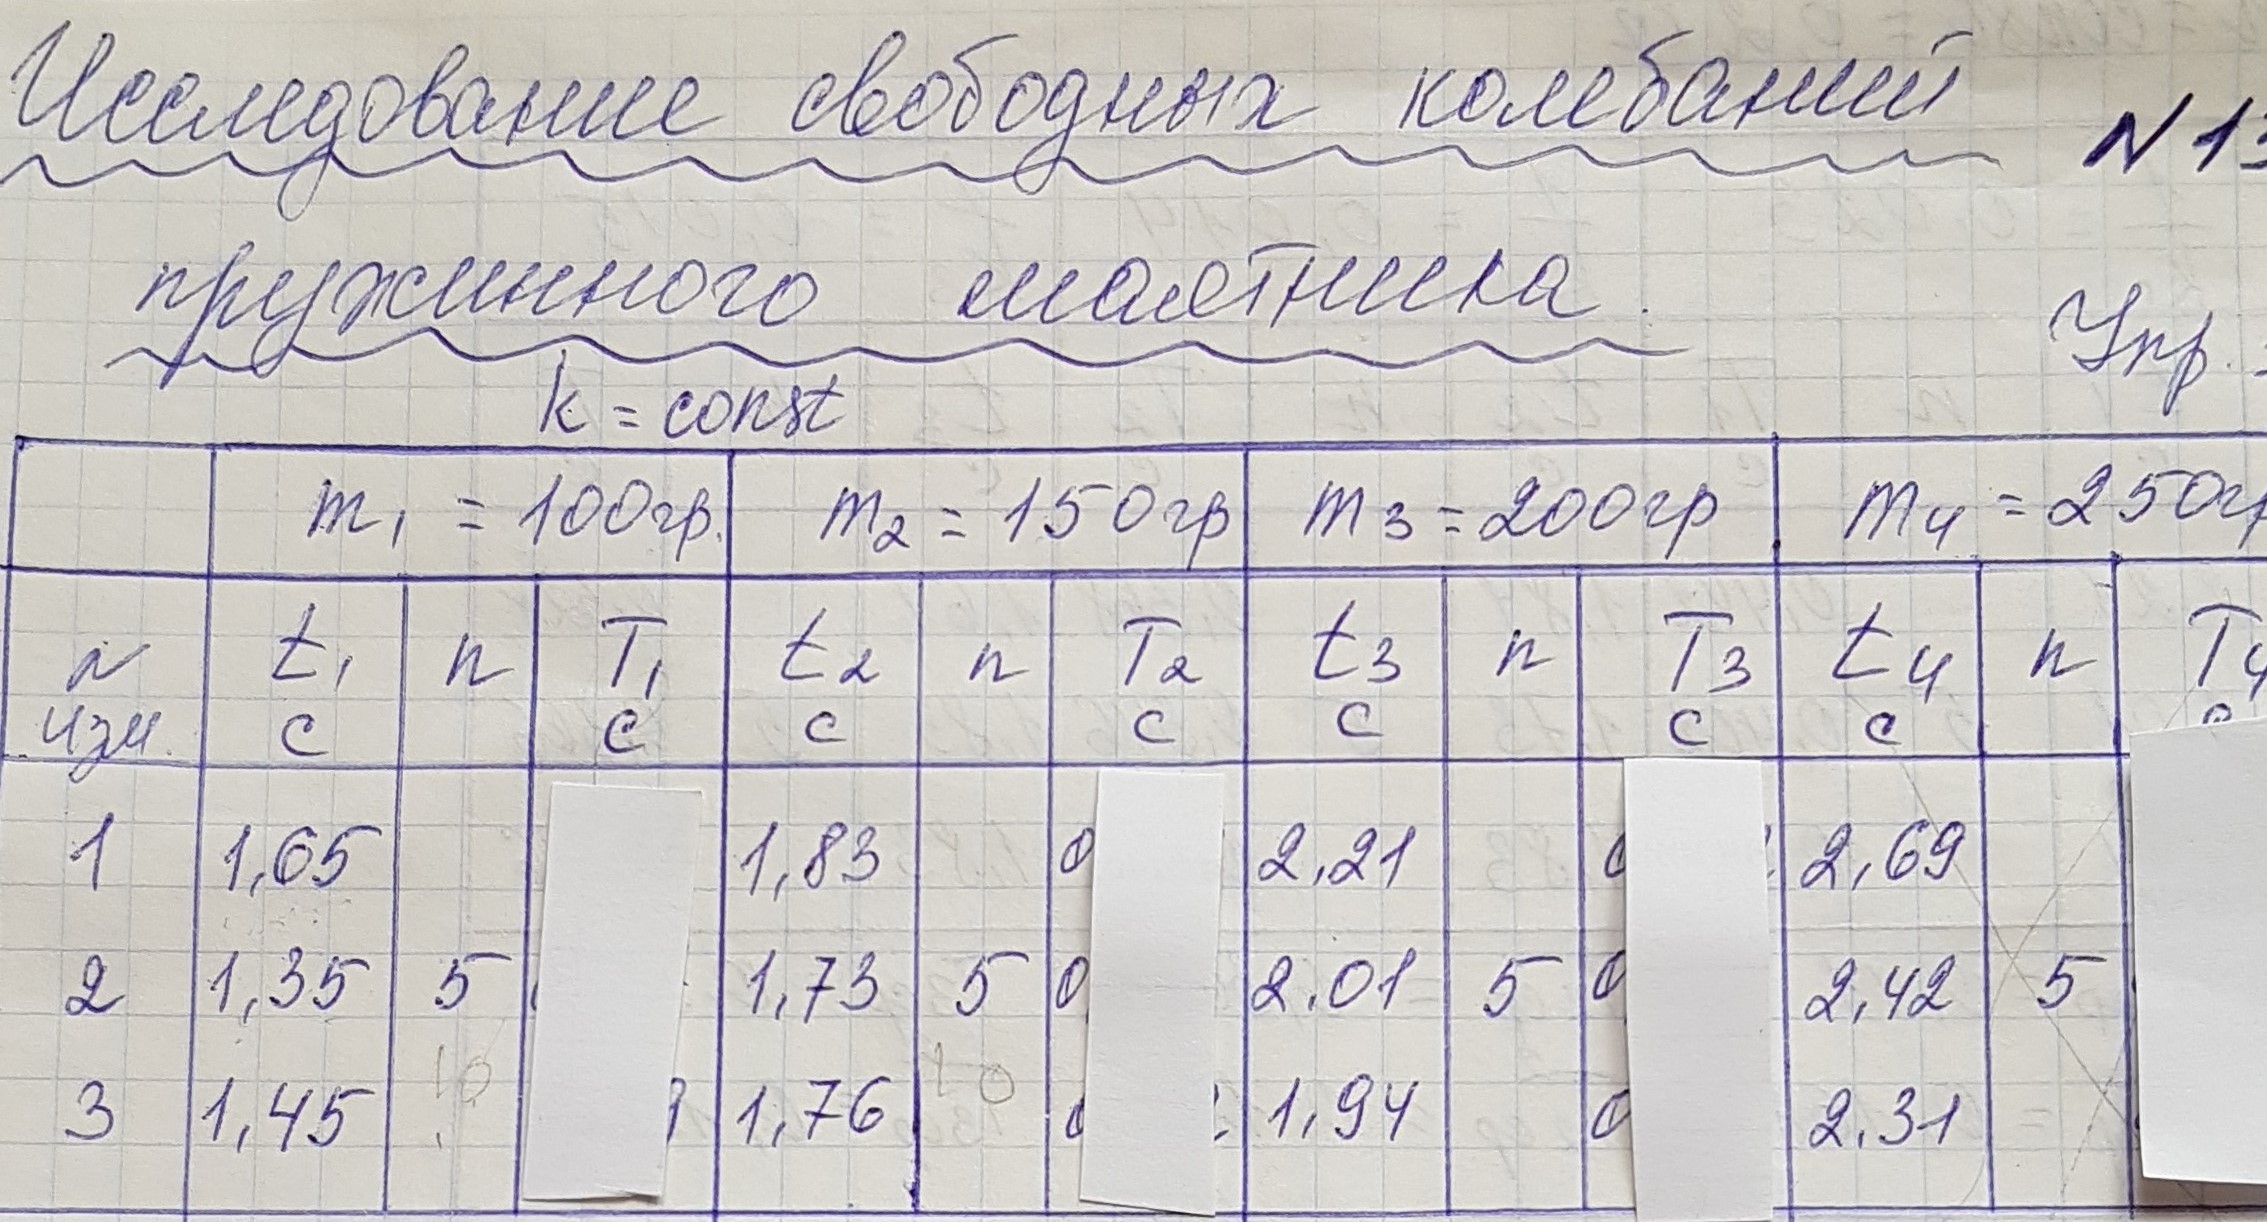 Исследование свободных колебаний
N 13
пружинного маятника.
Упр.
k = const
m₁ = 100гр. m₂ = 150гр m₃ = 200гр m₄ = 250гр
N изм. t₁ с n T₁ с t₂ с n T₂ с t₃ с n T₃ с t₄ с n T₄ с
1 1,65 1,83 0 2,21 0 2,69
2 1,35 5 1,73 5 0, 2,01 5 0, 2,42 5
3 1,45 10 1,76 10 0 1,94 0 2,31